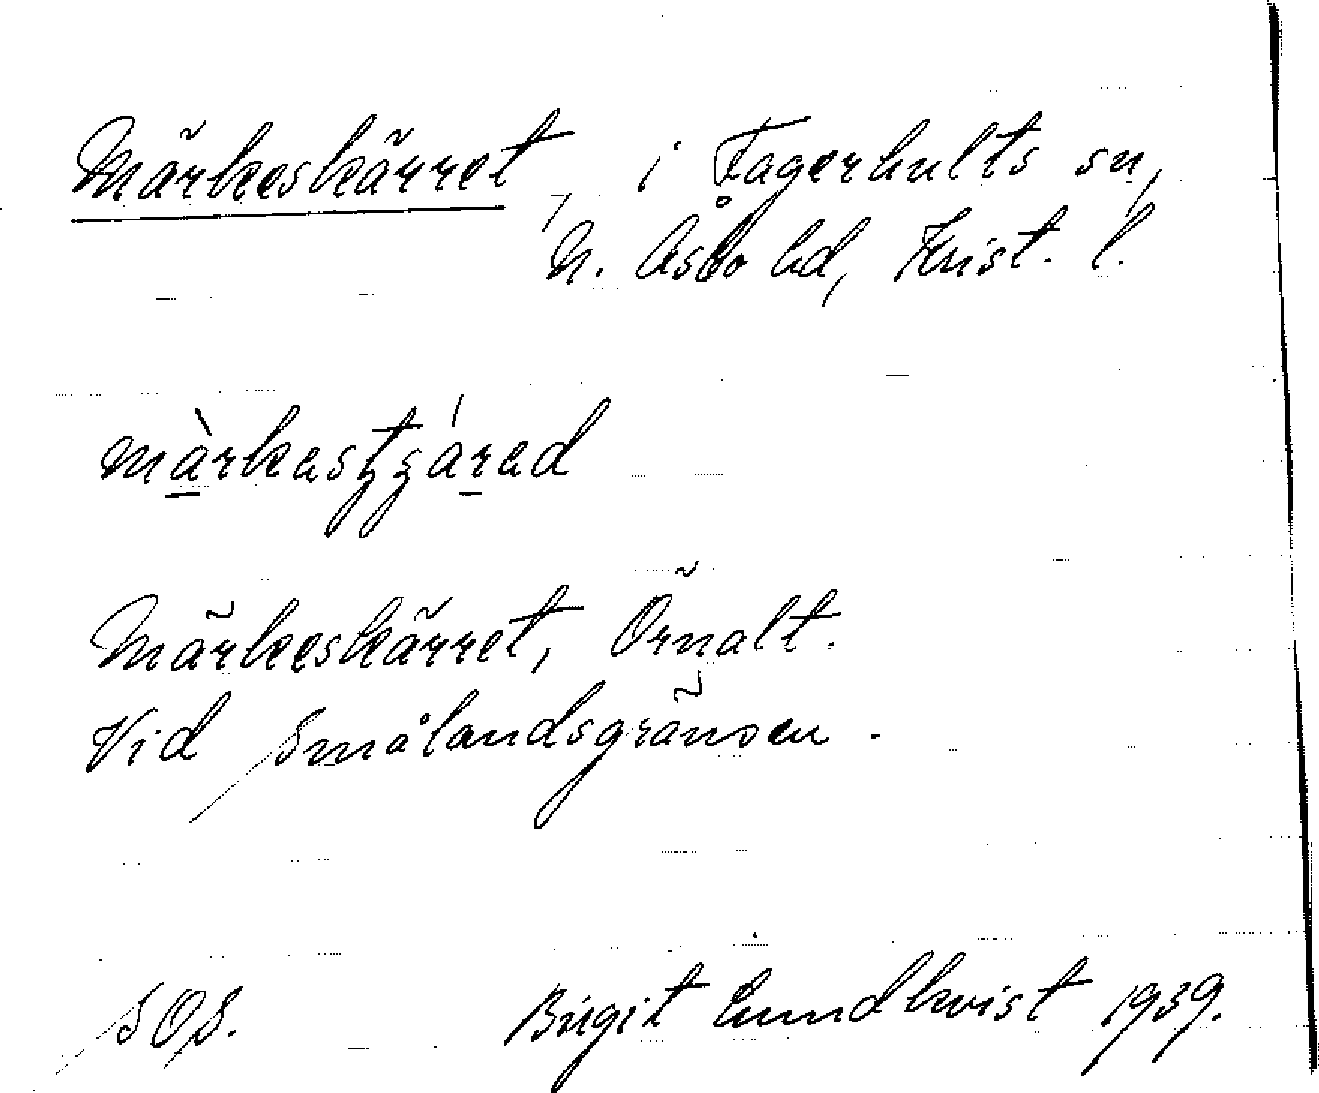 Märkeskärret, i Fagerhults sn,
N. Åsbo hd, Krist. l.
màrkastʒárad
Märkeskärret, Örnalt.
Vid Smålandsgränsen.
SOS. Birgit Lundkvist 1939.